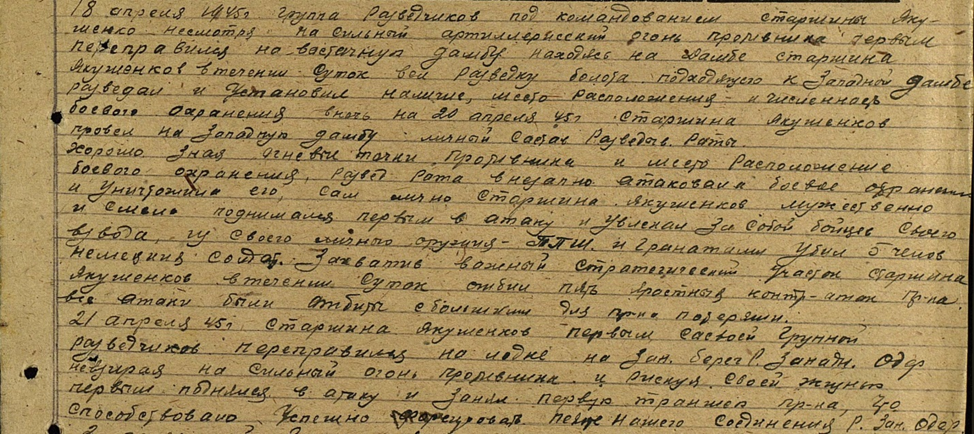 18 апреля 1945г группа Разведчиков под командованием старшины Яку-
шенко несмотря на сильный артиллерисский огонь противника первым
переправился на восточную дамбу находясь на дамбе старшина
Якушенков втечении Суток вел Разведку болота подходящего к Западной дамбе
разведал и Установил наличие, место Расположения и численность
боевого охранения вночь на 20 апреля 45г Старшина Якушенков
провел на Западную дамбу личный Состав Разведыв. Роты.
Хорошо Зная огневые точки Противника и место Расположение
боевого охранения, Развед Рота внезапно атаковала боевое охранение
и Уничтожила его, сам лично Старшина Якушенков мужественно
и смело поднимался первым в атаку и Увлекал За собой бойцев Своего
взвода, из своего личного оружия - ППШ и гранатами Убил 5 челов
немецких солдат. Захватив важный стратегический Участок Старшина
Якушенков втечении Суток отбил пять яростных контр-атак пр-ка
все атаки были отбиты сбольшими для пр-ка потерями.
21 апреля 45г Старшина Якушенков первым сасвоей группой
разведчиков переправился на лодке на Зап. берег Р. Западн. Одер
невзирая на сильный огонь противника и Рискуя Своей жизнью
первым поднялся в атаку и Занял первую траншею пр-ка, что
Способствовало Успешно форсировать Нашего Соединения Р. Зап. Одер